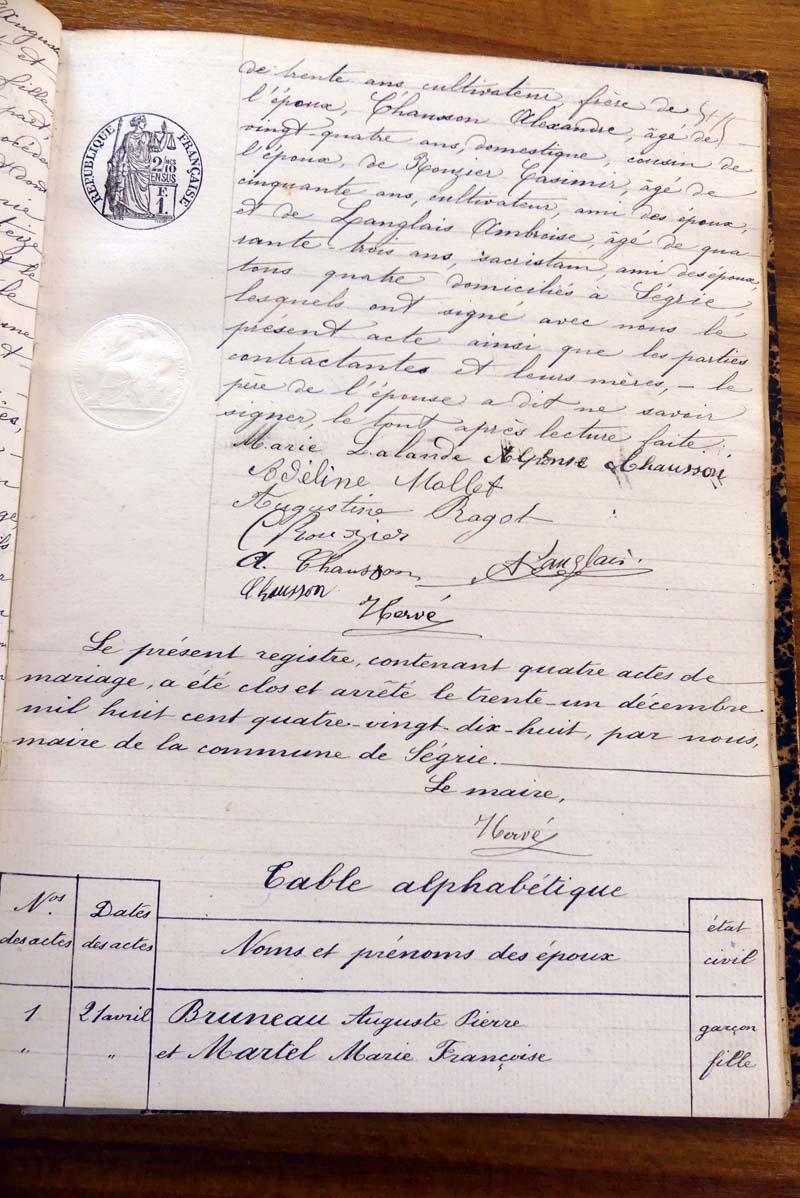 RÉPUBLIQUE FRANÇAISE
2/10
EN SUS
F.
1.
de trente ans, cultivateur, frère de
l'époux, Chausson Alexandre, âgé de
vingt-quatre ans, domestique, cousin de
l'époux, de Rouzier Casimir, âgé de
cinquante ans, cultivateur, ami des époux,
et de Langlais Ambroise, âgé de qua-
rante-trois ans, sacristain, ami des époux
tous quatre domiciliés à Ségrie,
lesquels ont signé avec nous le
présent acte ainsi que les parties
contractantes et leurs mères, – le
père de l'épouse a dit ne savoir
signer, le tout après lecture faite.
Marie Lalande Alphonse Chausson
Adéline Mollet
Augustine Ragot
C Rouzier
A. Chausson A Langlais.
Chausson
Hervé
Le présent registre, contenant quatre actes de
mariage, a été clos et arrêté le trente-un décembre
mil huit cent quatre-vingt-dix-huit, par nous,
maire de la commune de Ségrie.
Le maire,
Hervé
Table alphabétique
Nos des actes
Dates des actes
Noms et prénoms des époux
état civil
1 21 avril Bruneau Auguste Pierre garçon
" " et Martel Marie Françoise fille